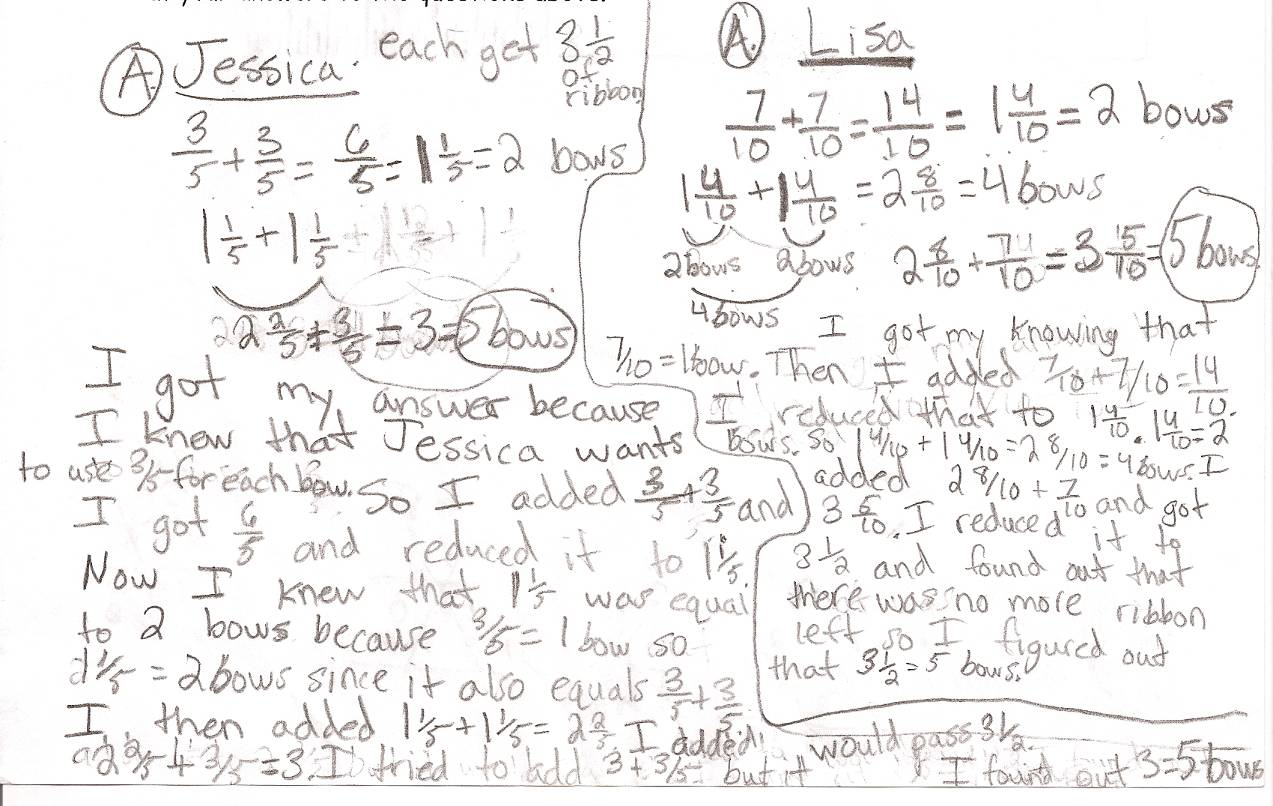 Ⓐ Jessica. each get 3 1/2 of ribbon
3/5 + 3/5 = 6/5 = 1 1/5 = 2 bows
1 1/5 + 1 1/5
2 2/5 + 3/5 = 3 = 5 bows
I got my answer because
I knew that Jessica wants
to use 3/5 for each bow. So I added 3/5 + 3/5 and
I got 6/5 and reduced it to 1 1/5.
Now I knew that 1 1/5 was equal
to 2 bows because 3/5 = 1 bow so
1 1/5 = 2 bows since it also equals 3/5 + 3/5.
I then added 1 1/5 + 1 1/5 = 2 2/5. I added
2 2/5 + 3/5 = 3. I tried to add 3 + 3/5 but it would pass 3 1/2.
I found out 3 = 5 bows
Ⓐ. Lisa
7/10 + 7/10 = 14/10 = 1 4/10 = 2 bows
1 4/10 + 1 4/10 = 2 8/10 = 4 bows
2 bows 2 bows 2 8/10 + 7/10 = 3 5/10 = 5 bows
4 bows
I got my knowing that
7/10 = 1 bow. Then I added 7/10 + 7/10 = 14/10.
I reduced that to 1 4/10. 1 4/10 = 2
bows. So 1 4/10 + 1 4/10 = 2 8/10 = 4 bows. I
added 2 8/10 + 7/10 and got
3 5/10. I reduced it to
3 1/2 and found out that
there was no more ribbon
left so I figured out
that 3 1/2 = 5 bows.